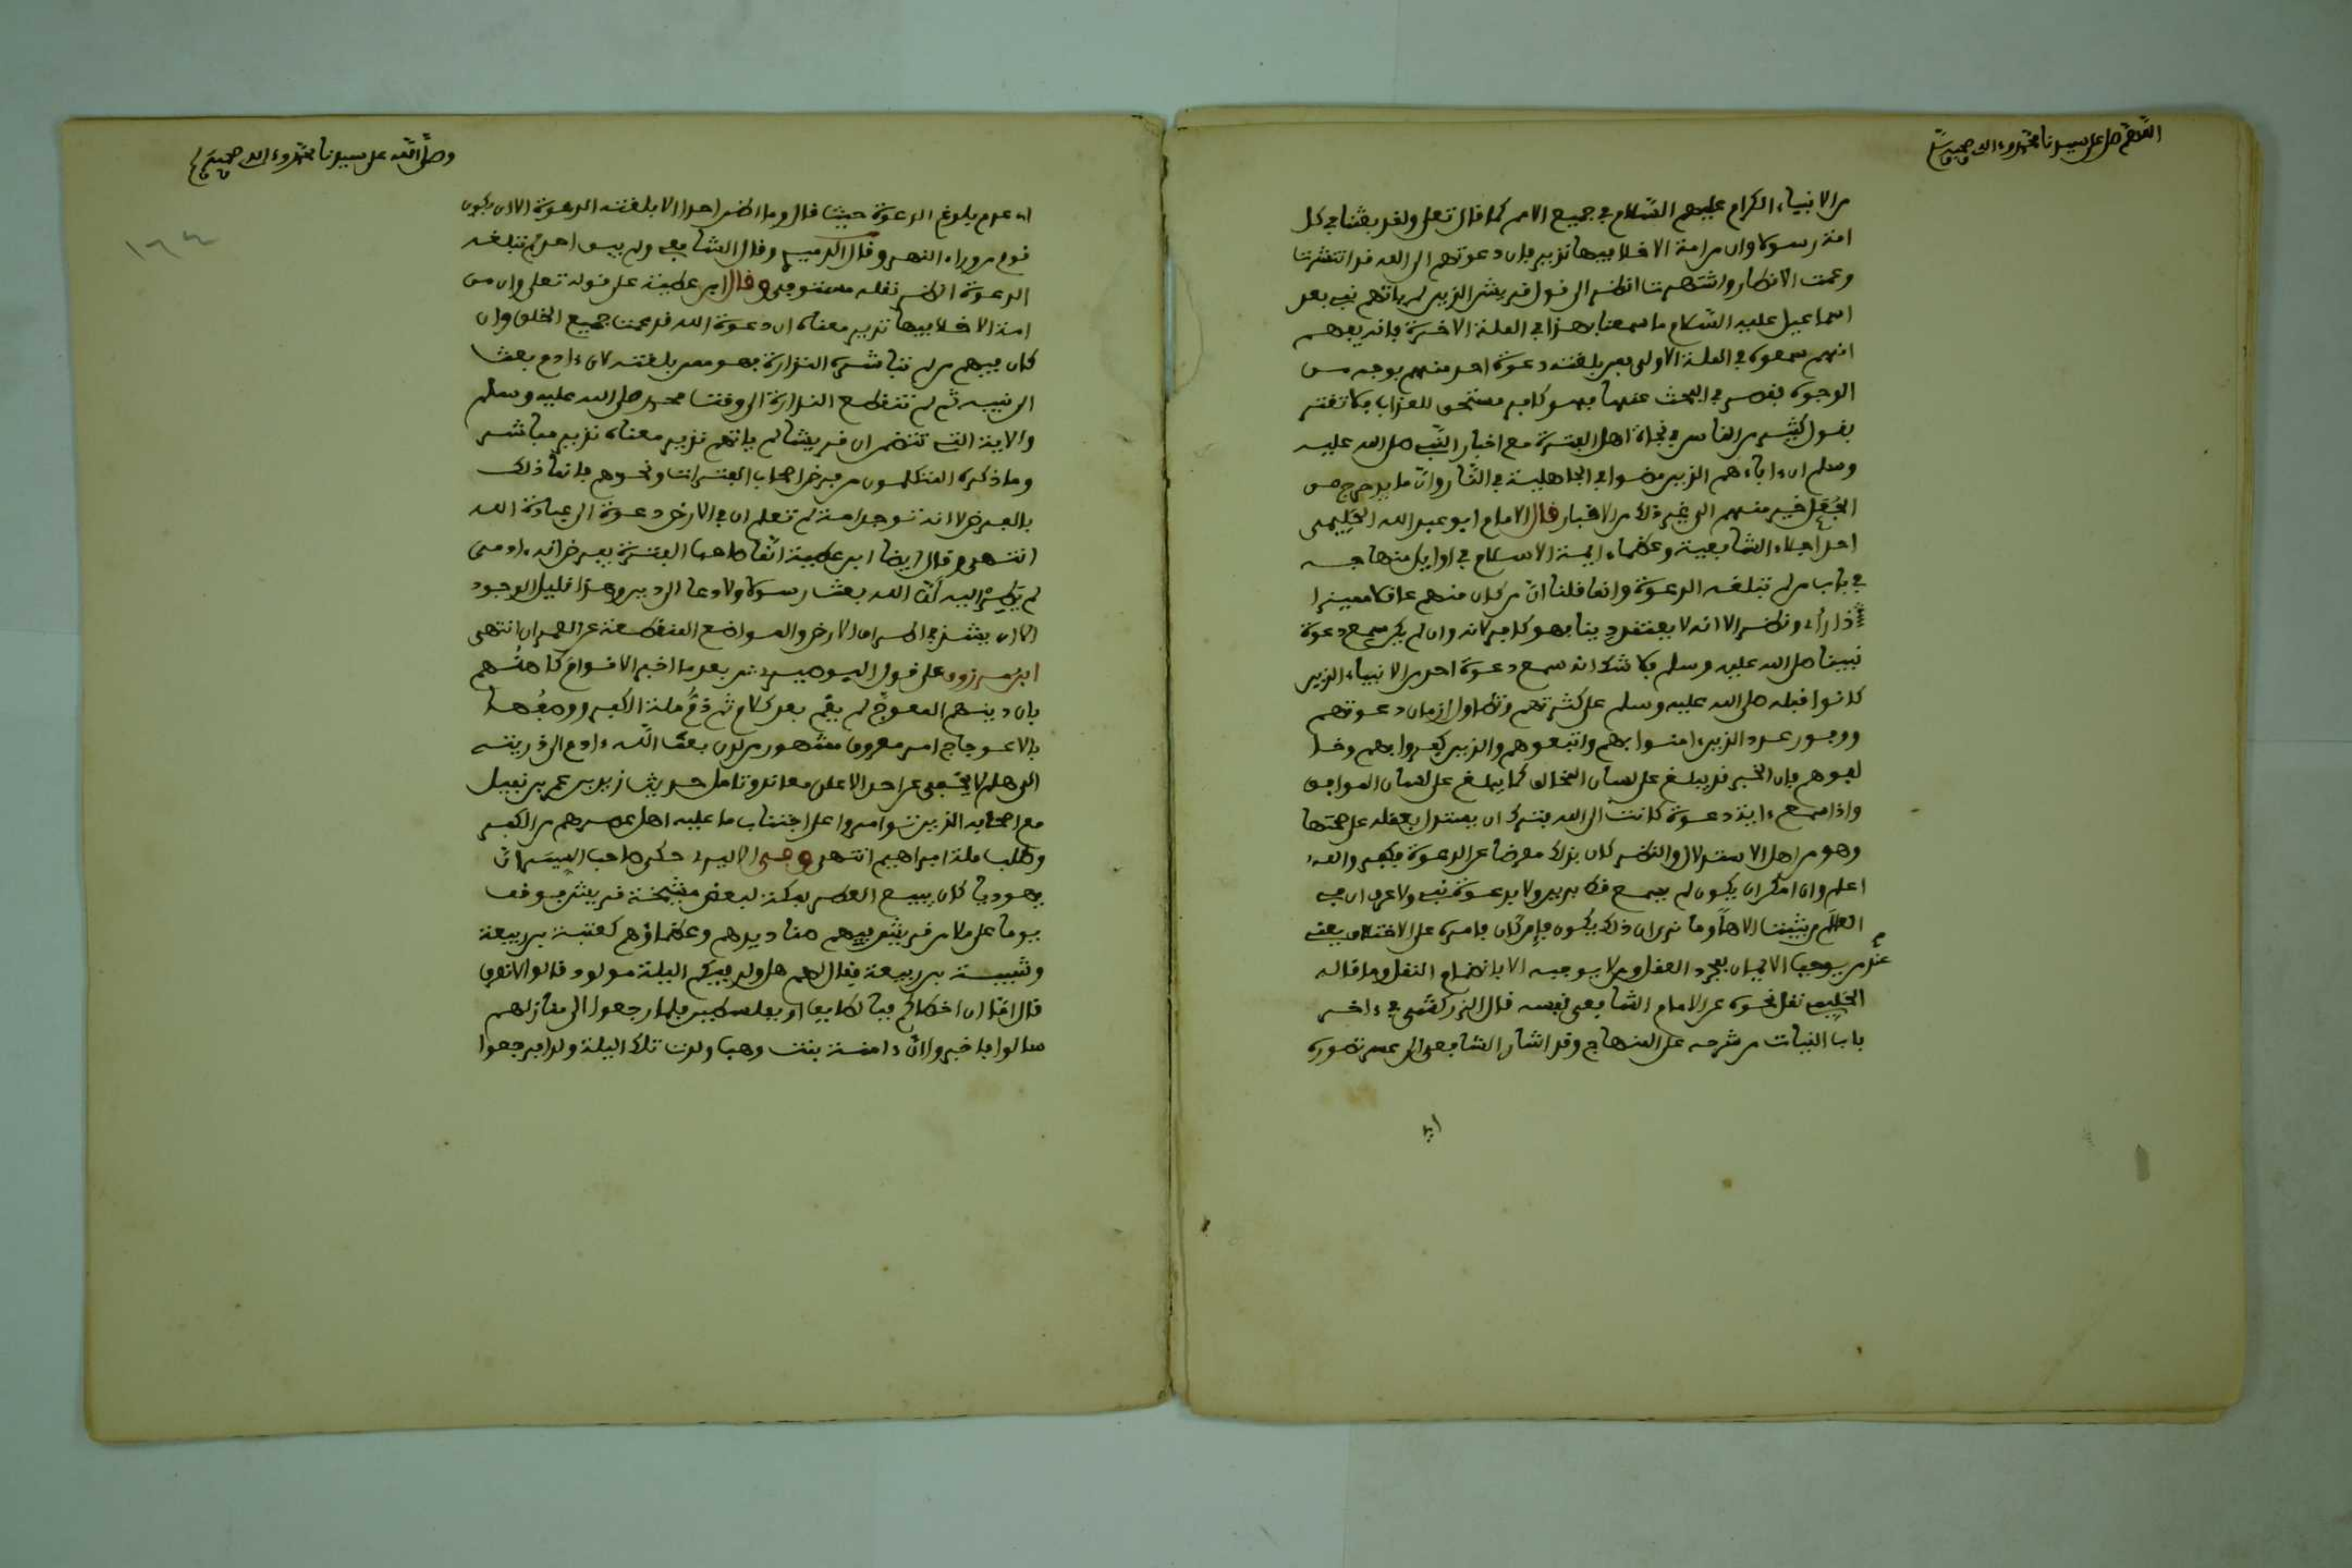 اللهم صل على سيدنا محمد وءاله وصحبه
من الانبياء الكرام عليهم السلام في جميع الامم كما قال تعلى ولقد بعثنا في كل
امة رسولا وان من امة الا خلا فيها نذير فان دعوتهم الى الله قد انتشرت
وعمت الاقطار واشتهرت انظر الى قول قريش الذين لم ياتهم نبي بعد
اسماعيل عليه السلام ما سمعنا بهذا في الملة الاخرة فانه يفهم
انهم سمعوه في الملة الاولى فمن بلغته دعوة احد منهم بوجه من
الوجوه فقصر في البحث عنها فهو كافر مستحق للعذاب فلا تغتر
بقول كثير من الناس في نجاة اهل الفترة مع اخبار النبي صلى الله عليه
وسلم ان ءاباءهم الذين مضوا في الجاهلية في النار وان ما يدحرج من
الجعل خير منهم الى غير ذلك من الاخبار قال الامام ابو عبد الله الحليمي
احد اجلاء الشافعية وعظماء ايمة الاسلام في اوايل منهاجه
في باب من لم تبلغه الدعوة وانما قلنا ان من كان منهم عاقلا مميزا
اذا رأى ونظر الا انه لا يعتقد دينا فهو كافر لانه وان لم يكن سمع دعوة
نبينا صلى الله عليه وسلم فلا شك انه سمع دعوة احد من الانبياء الذين
كانوا قبله صلى الله عليه وسلم على كثرتهم وتطاول ازمان دعوتهم
ووفور عدد الذين ءامنوا بهم واتبعوهم والذين كفروا بهم وخا
لفوهم فان الخبر قد يبلغ على لسان المخالف كما يبلغ على لسان الموافق
واذا سمع ءاية دعوة كانت الى الله فترك ان يستدل بعقله على صحتها
وهو من اهل الاستدلال والنظر كان بذلك معرضا عن الدعوة فكفر والله
اعلم وان امكن ان يكون لم يسمع قط بدين ولا بدعوة نبي ولا عرف ان في
العالم من يثبت الاها وما نرى ان ذلك يكون فان كان فامره على الاختلاف يعني
عند من يوجب الايمان بمجرد العقل ومن لا يوجبه الا بانضمام النقل وما قاله
الحليمي نقل نحوه عن الامام الشافعي نفسه قال الزركشي في ءاخر
باب النيات من شرحه على المنهاج وقد اشار الشافعي الى عسر تصوره
اي
وصلى الله على سيدنا محمد وءاله وصحبه
اي عدم بلوغ الدعوة حيث قال وما اظن احدا الا بلغته الدعوة الا ان يكون
قوم من وراء النهر وقال الدميري وقال الشافعي ولم يبق احد لم تبلغه
الدعوة انظر نقله وقال ابن عطية على قوله تعلى وان من
امة الا خلا فيها نذير معناه ان دعوة الله قد عمت جميع الخلق وان
كان فيهم من لم تباشره النذارة فهو ممن بلغته لان ءادم بعث
الى بنيه ثم لم تنقطع النذارة الى وقت محمد صلى الله عليه وسلم
والاية التي تتضمن ان قريشا لم ياتهم نذير معناه نذير مباشر
وما ذكره المتكلمون من فرض اصحاب الفترات ونحوهم فانما ذلك
بالفرض لا انه توجد امة لم تعلم ان في الارض دعوة الى عبادة الله
انتهى وقال ايضا ابن عطية اما صاحب الفترة يفرض انه ءادمي
لم يطر اليه ان الله بعث رسولا ولا دعا الى دين وهذا قليل الوجود
الا ان يشذ في اطراف الارض والمواضع المنقطعة عن العمران انتهى
ابن مرزوق على قول البوصيري من بعد ما اخبر الاقوام كاهنهم
بان دينهم المعوج لم يقم بعد كلام ثم ذم ملة الكفر ووصفها
بالاعوجاج امر معروف مشهور من لدن بعث الله ءادم الى ذريته
الى هلم لا يخفى عن احد الا على معاند وتامل حديث زيد بن عمرو بن نفيل
مع اصحابه الذين توامروا على اجتناب ما عليه اهل عصرهم من الكفر
وطلب ملة ابراهيم انتهى حكى صاحب السير ان
يهوديا كان يبيع العطر بمكة لبعض مشيخة قريش فوقف
يوما على ملا من قريش فيهم صناديدهم وعظماؤهم كعتبة بن ربيعة
وشيبة بن ربيعة فقال لهم هل ولد فيكم البلة مولود قالوا لا نعرف
قال اما ان اخطاكم فبالطايف او بفلسطين فلما رجعوا الى منازلهم
سالوا فاخبروا ان ءامنة بنت وهب ولدت تلك اليلة ولدا فرجعوا
١٦٤